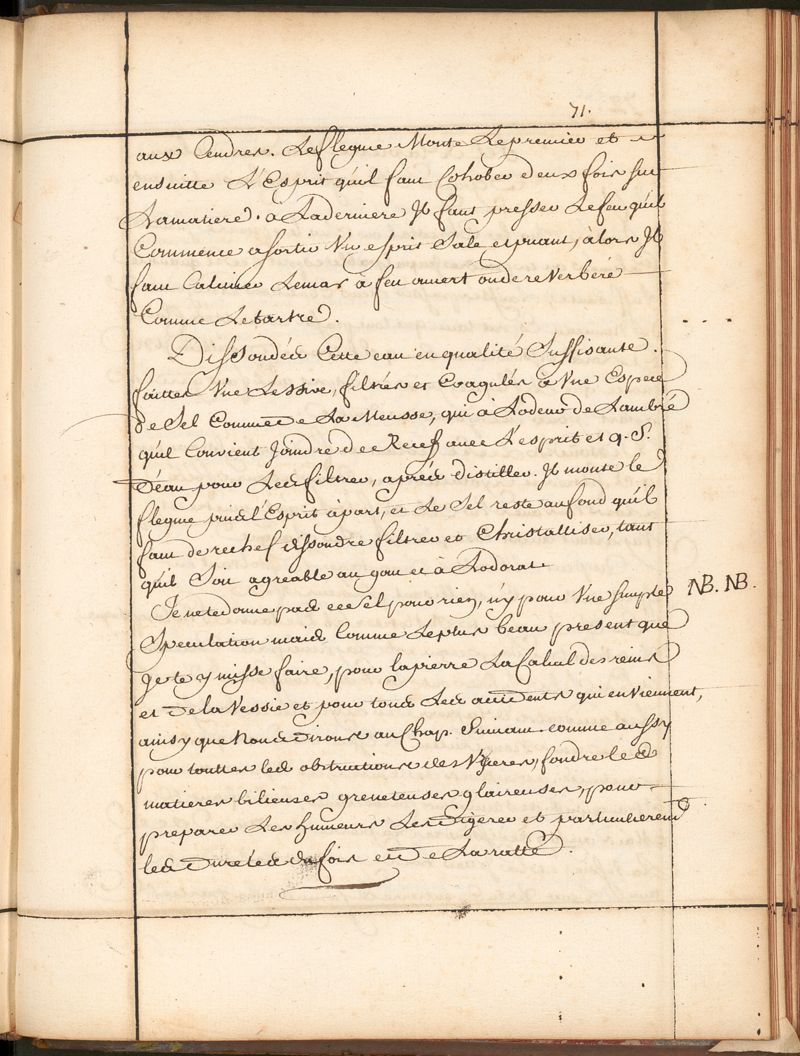 71.
aux Cendres. Le flegme Monte Le premier et
ensuitte L'Esprit qu'il faut Cohober deux fois sur
La matiere. a La derniere Il faut presser Le feu qu'il
Commence a sortir Vn esprit Sale et puant, alors Il
faut Calciner Le mar à feu ouvert ou de reverbére
Comme Le tartre.
Dissoudés Cette eau en qualité Suffisante.
faittes Vne Lessive, filtrés et Coagulés à Vne Espece
de Sel Comme de La Mousse, qui à Lodeur de Lambre
qu'il Convient Joindre de Recef avec L'esprit et q. S.
D'eau pour Les filtrer, aprés distiller. Il monte le
flegme puis L'Esprit à part, et Le Sel reste au fond qu'il
faut de rechef dissoudre filtrer et Christalliser, tant
qu'il Soit agreable au gout et à Lodorat
Je ne te donne pas ce Sel pour rien, n'y pour Vne Simple
NB. NB.
Speculation mais Comme Le plus beau present que
Je te y misse faire, pour la pierre La Calcul des reins
et De la Vessie et pour tous Les accidents qui en Viennent,
ainsy que Nous dirons au Chap. Suivant. comme aussy
pour touttes les obstructions des Visceres, fondre le
matieres bilieuses gluireuses, pour
preparer Les humeurs Les Digerer et particulierem.t
les Duretés du foie et De La ratte.